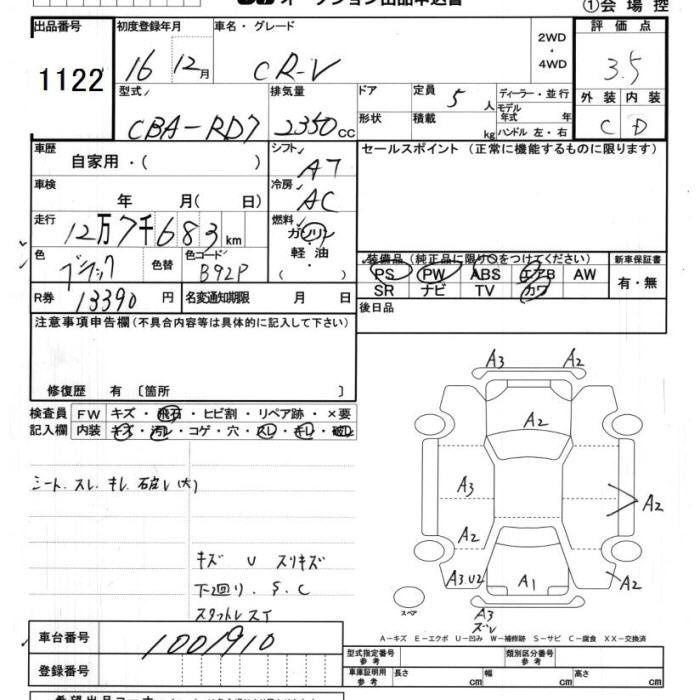 ①会場控
出品番号 初度登録年月 車名・グレード 評価点
1122 16 12月 CR-V 2WD ・ 4WD 3.5
型式 排気量 ドア 定員 5人 ディーラー・並行 外装 内装
CBA-RD7 2350cc 形状 積載 kg モデル年式 年 C D
ハンドル 左・右
車歴 自家用・( ) シフト AT セールスポイント(正常に機能するものに限ります)
車検 年 月( 日) 冷房 AC
走行 12万7千683km 燃料 ガソリン・軽油・( )
色 ブラック 色替 色コード B92P 装備品(純正品に限り○をつけてください) 新車保証書
PS PW ABS エアB AW 有・無
SR ナビ TV カワ
R券 13390円 名変通知期限 月 日 後日品
注意事項申告欄(不具合内容等は具体的に記入して下さい)
修復歴 有 〔箇所 〕
検査員 FW キズ・飛石・ヒビ割・リペア跡・×要
記入欄 内装 キズ・汚レ・コゲ・穴・スレ・キレ・破レ
シート. スレ. キレ.
キズ U スリキズ
下回り. S.C
スタットレスタイ
A3 A2
A2
A3 A2
A2
A3.U2 A1 A2
スペア A3
ズレ
A-キズ E-エクボ U-凹み W-補修跡 S-サビ C-腐食 XX-交換済
車台番号 1001910
型式指定番号 参考 類別区分番号 参考
登録番号 車庫証明用 参考 長さ cm 幅 cm 高さ cm